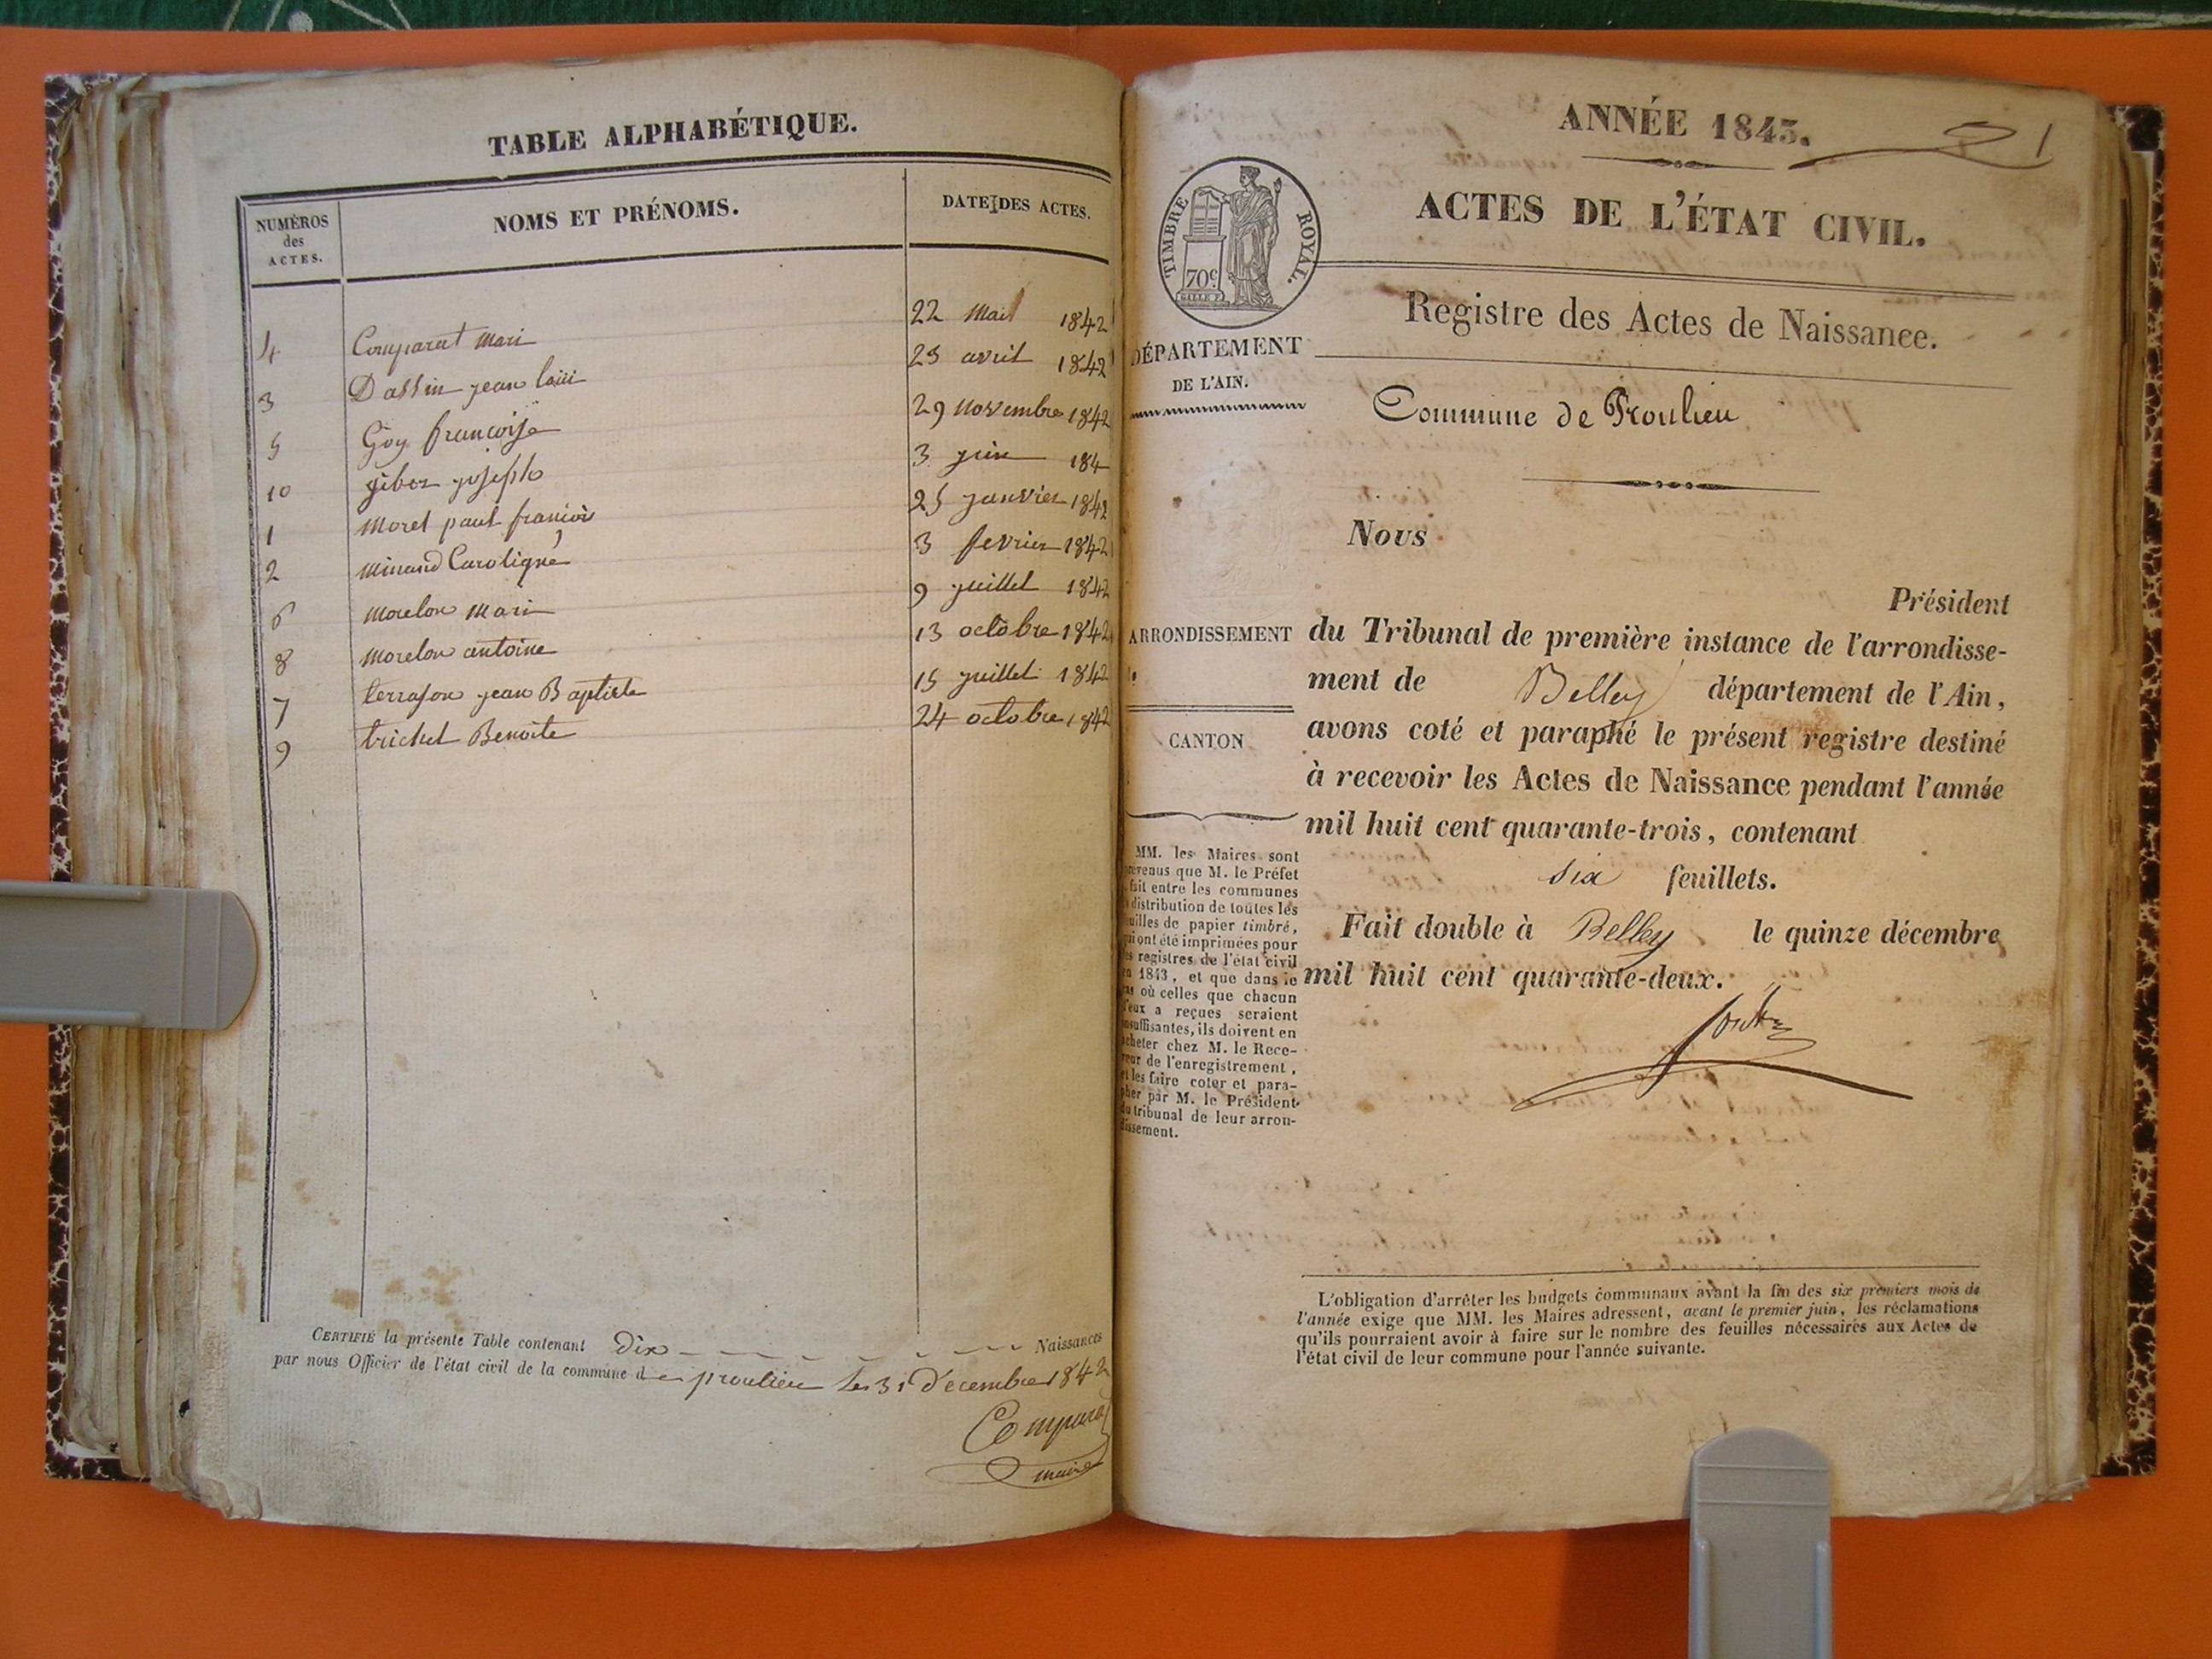 TABLE ALPHABÉTIQUE.
NUMÉROS
des
ACTES.
NOMS ET PRÉNOMS.
DATE DES ACTES.
4 Comparat mari 22 Mai 1842
3 Dassin jean loüi 25 avril 1842
5 Goy francoise 29 novembre 1842
10 giboz joseph 3 juin 184
1 Moret paul francois 25 janvier 1842
2 minand 3 fevrier 1842
6 morelon mari 9 juillet 1842
8 morelon antoine 13 octobre 1842
7 terrason jean Baptiste 15 juillet 1842
9 trichet Benoite 24 octobre 1842
CERTIFIÉ la présente Table contenant dix Naissances
par nous Officier de l'état civil de la commune de proulieu les 31 Décembre 1842
Comparat
maire
ANNÉE 1843.
1
ACTES DE L'ÉTAT CIVIL.
TIMBRE ROYAL.
70c
Registre des Actes de Naissance.
DÉPARTEMENT
DE L'AIN.
Commune de Proulieu
Nous
Président
ARRONDISSEMENT
du Tribunal de première instance de l'arrondisse-
ment de Belley département de l'Ain,
CANTON
avons coté et paraphé le présent registre destiné
à recevoir les Actes de Naissance pendant l'année
mil huit cent quarante-trois, contenant
six feuillets.
Fait double à Belley le quinze décembre
mil huit cent quarante-deux.
MM. les Maires sont
prévenus que M. le Préfet
fait entre les communes
distribution de toutes les
feuilles de papier timbré,
qui ont été imprimées pour
les registres de l'état civil
en 1843, et que dans le
cas où celles que chacun
d'eux a reçues seraient
insuffisantes, ils doivent en
acheter chez M. le Rece-
veur de l'enregistrement,
et les faire coter et para-
pher par M. le Président
du tribunal de leur arron-
dissement.
L'obligation d'arrêter les budgets communaux avant la fin des six premiers mois de
l'année exige que MM. les Maires adressent, avant le premier juin, les réclamations
qu'ils pourraient avoir à faire sur le nombre des feuilles nécessaires aux Actes de
l'état civil de leur commune pour l'année suivante.